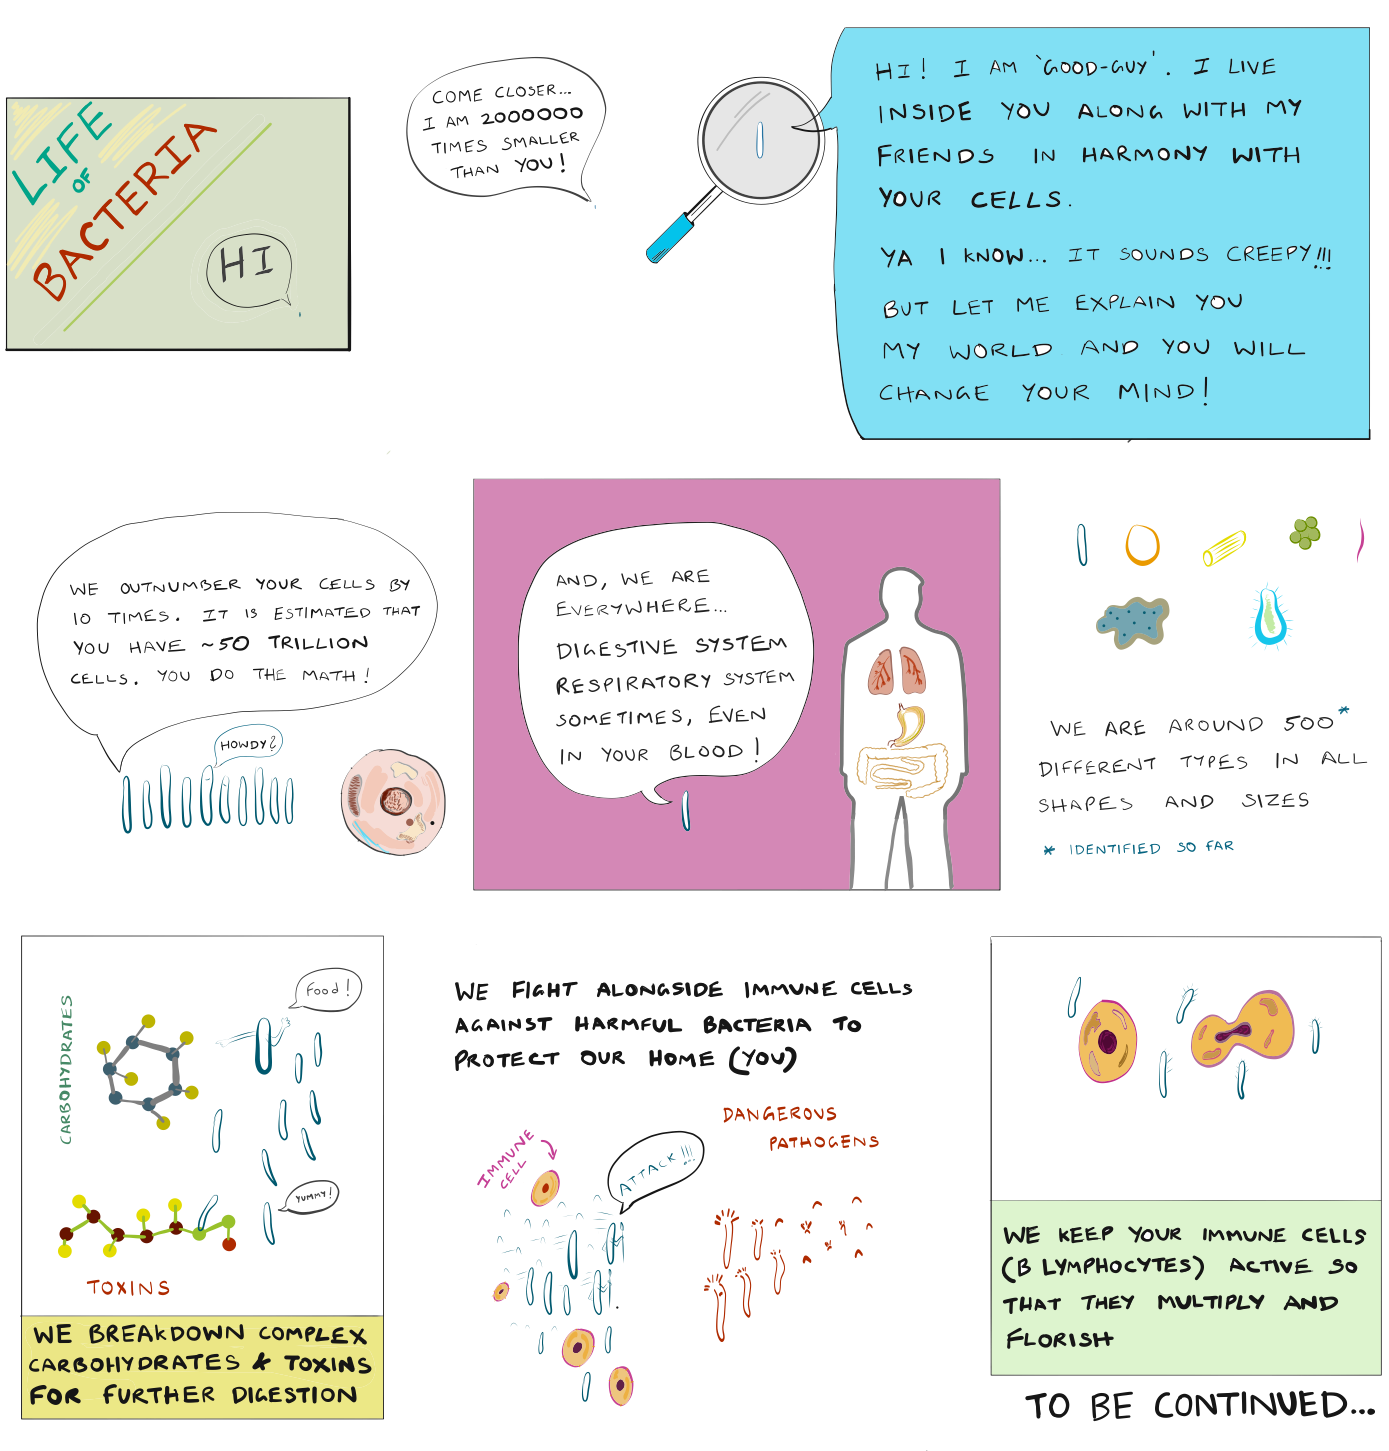 LIFE
OF
BACTERIA
HI
COME CLOSER...
I AM 2000000
TIMES SMALLER
THAN YOU!
HI! I AM 'GOOD-GUY'. I LIVE
INSIDE YOU ALONG WITH MY
FRIENDS IN HARMONY WITH
YOUR CELLS.
YA I KNOW... IT SOUNDS CREEPY!!!
BUT LET ME EXPLAIN YOU
MY WORLD AND YOU WILL
CHANGE YOUR MIND!
WE OUTNUMBER YOUR CELLS BY
10 TIMES. IT IS ESTIMATED THAT
YOU HAVE ~50 TRILLION
CELLS. YOU DO THE MATH!
HOWDY?
AND, WE ARE
EVERYWHERE...
DIGESTIVE SYSTEM
RESPIRATORY SYSTEM
SOMETIMES, EVEN
IN YOUR BLOOD!
WE ARE AROUND 500*
DIFFERENT TYPES IN ALL
SHAPES AND SIZES
* IDENTIFIED SO FAR
CARBOHYDRATES
Food!
YUMMY!
TOXINS
WE BREAKDOWN COMPLEX
CARBOHYDRATES & TOXINS
FOR FURTHER DIGESTION
WE FIGHT ALONGSIDE IMMUNE CELLS
AGAINST HARMFUL BACTERIA TO
PROTECT OUR HOME (YOU)
IMMUNE
CELL
ATTACK!!!
DANGEROUS
PATHOGENS
WE KEEP YOUR IMMUNE CELLS
(B LYMPHOCYTES) ACTIVE SO
THAT THEY MULTIPLY AND
FLORISH
TO BE CONTINUED...